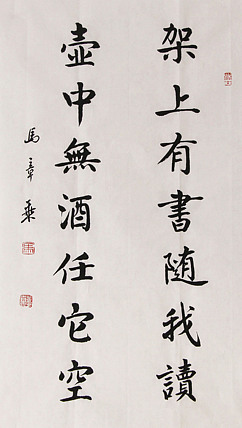 架上有書隨我讀
壺中無酒任它空
馬章乘